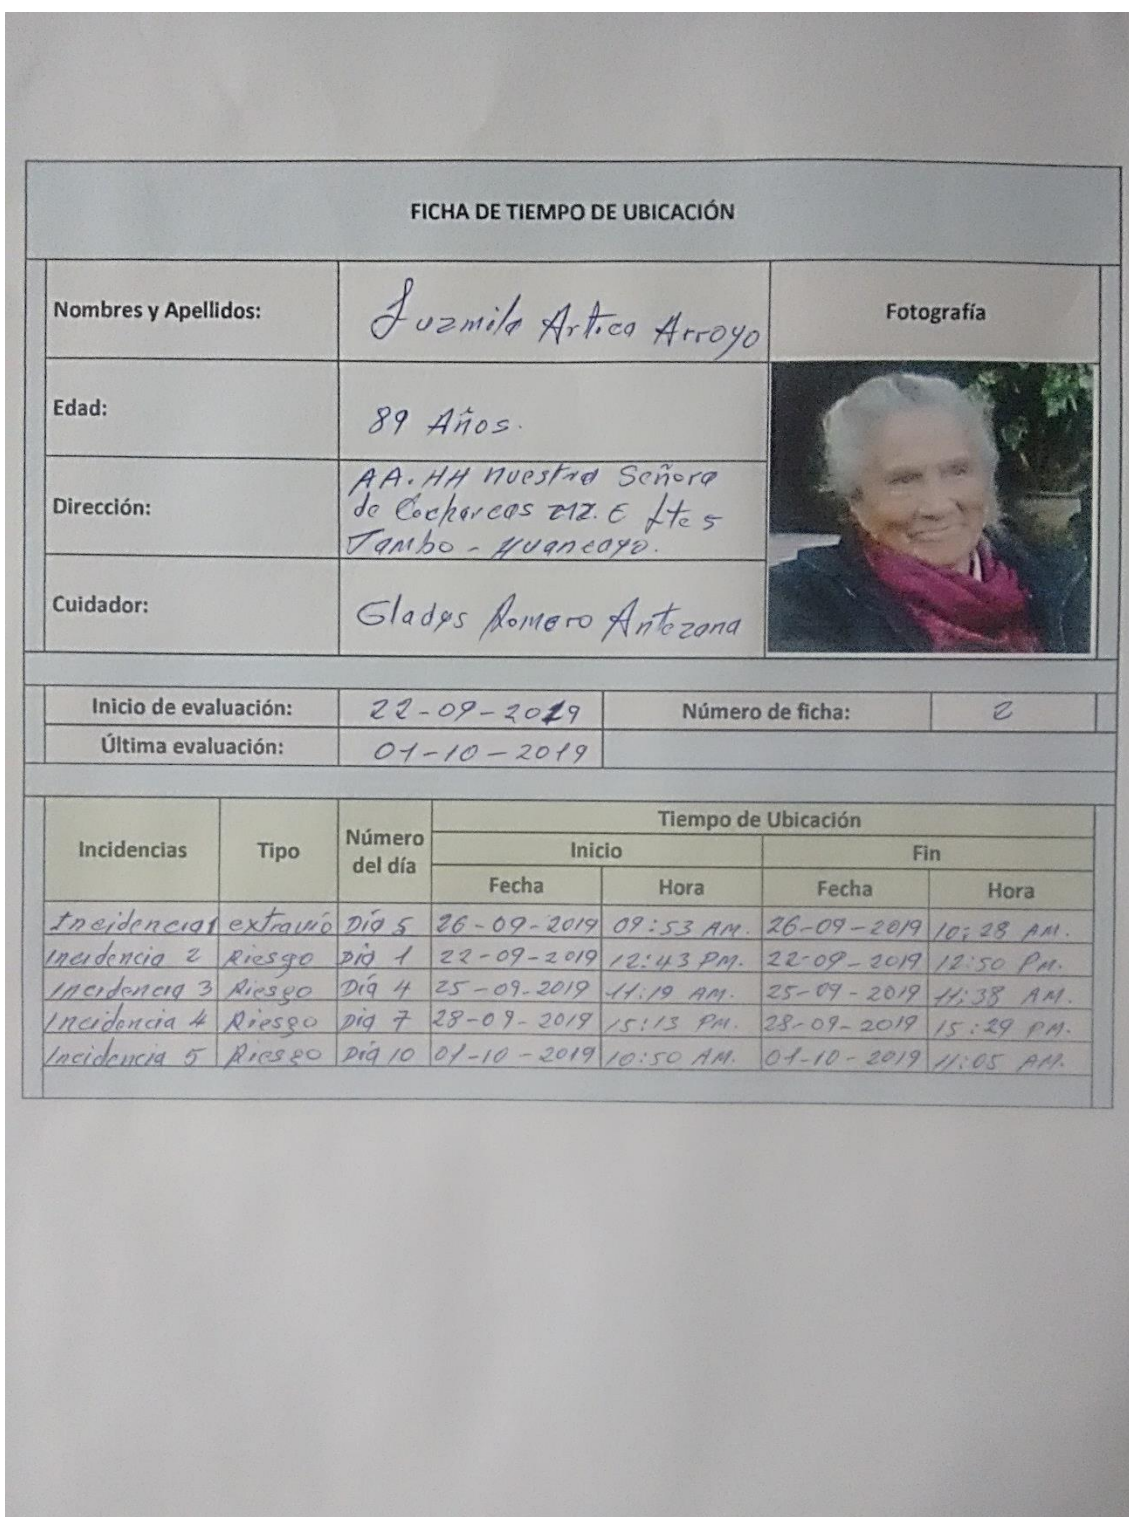 FICHA DE TIEMPO DE UBICACIÓN
Nombres y Apellidos: Luzmila Artica Arroyo Fotografía
Edad: 89 Años.
Dirección: AA.HH Nuestra Señora
de Cocharcas MZ. E Lte 5
Tambo - Huancayo.
Cuidador: Gladys Romero Antezana
Inicio de evaluación: 22-09-2019 Número de ficha: 2
Última evaluación: 01-10-2019
Tiempo de Ubicación
Incidencias Tipo Número del día Inicio Fin
Fecha Hora Fecha Hora
Incidencia 1 extravió Día 5 26-09-2019 09:53 AM. 26-09-2019 10:28 AM.
Incidencia 2 Riesgo Día 1 22-09-2019 12:43 PM. 22-09-2019 12:50 PM.
Incidencia 3 Riesgo Día 4 25-09-2019 11:19 AM. 25-09-2019 11:38 AM.
Incidencia 4 Riesgo Día 7 28-09-2019 15:13 PM. 28-09-2019 15:29 PM.
Incidencia 5 Riesgo Día 10 01-10-2019 10:50 AM. 01-10-2019 11:05 AM.